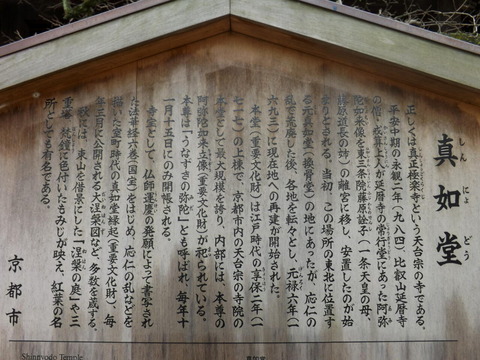 真如堂
しんにょどう
正しくは真正極楽寺という天台宗の寺である。
平安中期の永観二年（九八四）、比叡山延暦寺
の僧・戒算上人が延暦寺の常行堂にあった阿弥
陀如来像を東三条院藤原詮子（一条天皇の母、
藤原道長の姉）の離宮に移し、安置したのが始
まりとされる。当初、この場所の東北に位置す
る元真如堂（換骨堂）の地にあったが、応仁の
乱で荒廃した後、各地を転々とし、元禄六年（一
六九三）に現在地への再建が開始された。
本堂（重要文化財）は江戸時代の享保二年（一
七一七）の上棟で、京都市内の天台宗の寺院の
本堂として最大規模を誇り、内部には、本尊の
阿弥陀如来立像（重要文化財）が祀られている。
本尊は「うなずきの弥陀」とも呼ばれ、毎年十
一月十五日にのみ開帳される。
寺宝として、仏師運慶の発願によって書写され
た法華経六巻（国宝）をはじめ、応仁の乱などを
描いた室町時代の真如堂縁起（重要文化財）、毎
年三月に公開される大涅槃図など、多数を蔵する。
秋には、東山を借景にした「涅槃の庭」や三
重塔、鐘楼に色付いたもみじが映え、紅葉の名
所としても有名である。
京都市
Shinnyodo Temple
真如堂